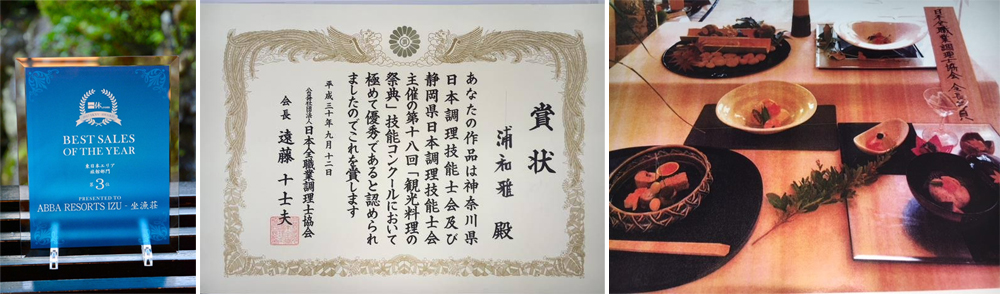 一休
BEST SALES
OF THE YEAR
東日本エリア
旅館部門
第3位
PRESENTED TO
ABBA RESORTS IZU - 坐漁荘
賞状
浦和雅 殿
あなたの作品は神奈川県
日本調理技能士会及び
静岡県日本調理技能士会
主催の第十八回「観光料理の
祭典」技能コンクールにおいて
極めて優秀であると認められ
ましたのでこれを賞します
平成三十年九月十二日
公益社団法人日本全職業調理士協会
会長 遠藤十士夫
日本全職業調理士協会会長賞